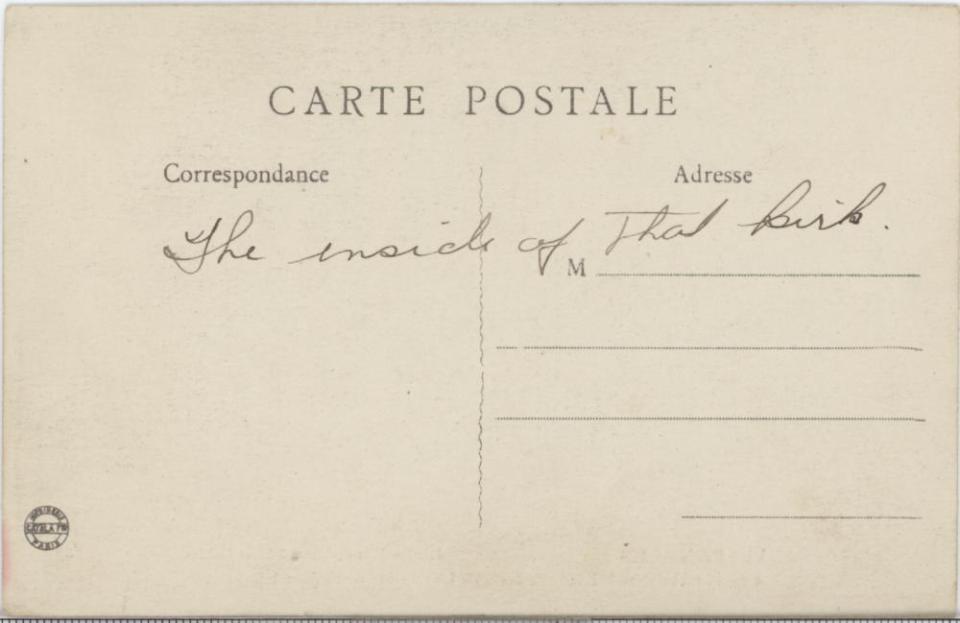 CARTE POSTALE
Correspondance
Adresse
The inside of That Kirk.
M
IMPRIMERIE
PARIS